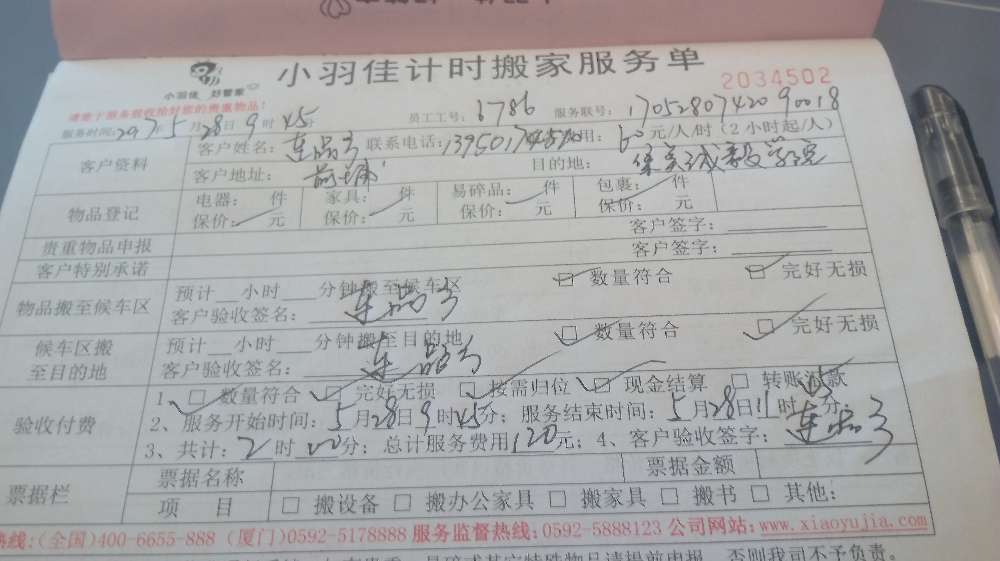 小羽佳计时搬家服务单
小羽佳 好管家
2034502
请勿于服务验收给付您的贵重物品!
服务时间: 2017年5月28日9时45分 员工工号: 6786 服务联号: 1705280742090018
客户资料 客户姓名: 联系电话: 60元/人/时(2小时起/人)
客户地址: 前埔 目的地: 诚毅学院
物品登记 电器: 件 家具: 件 易碎品: 件 包裹: 件
保价: 元 保价: 元 保价: 元 保价: 元
贵重物品申报 客户签字:
客户特别承诺 客户签字:
物品搬至候车区 预计__小时___分钟搬至候车区 □ 数量符合 □ 完好无损
客户验收签名:
候车区搬至目的地 预计__小时___分钟搬至目的地 □ 数量符合 □ 完好无损
客户验收签名:
验收付费 1、□ 数量符合 □ 完好无损 □ 按需归位 □ 现金结算 □ 转账
2、服务开始时间: 5月28日9时45分; 服务结束时间: 5月28日11时45分;
3、共计: 2时00分; 总计服务费用120元; 4、客户验收签字:
票据栏 票据名称 票据金额
项 目 □ 搬设备 □ 搬办公家具 □ 搬家具 □ 搬书 □ 其他:
热线:(全国)400-6655-888 (厦门)0592-5178888 服务监督热线:0592-5888123 公司网站:www.xiaoyujia.com
易碎或其它特殊物品请提前申报, 否则我司不予负责。